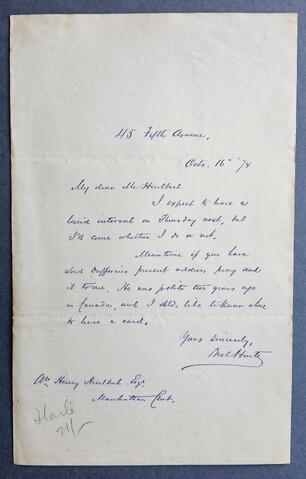 45 Fifth Avenue.
Octo. 16th '74
My dear Mr Hurlbut
I expect to have a
lucid interval on Thursday next, but
I'll come whether I do or not.
Meantime if you have
Lord Dufferin's present address pray send
it to me. He was polite two years ago
in Canada, and I shd. like to know where
to leave a card.
Yours Sincerely,
Wm Henry Hurlbut Esq.
Manhattan Club.
24/-